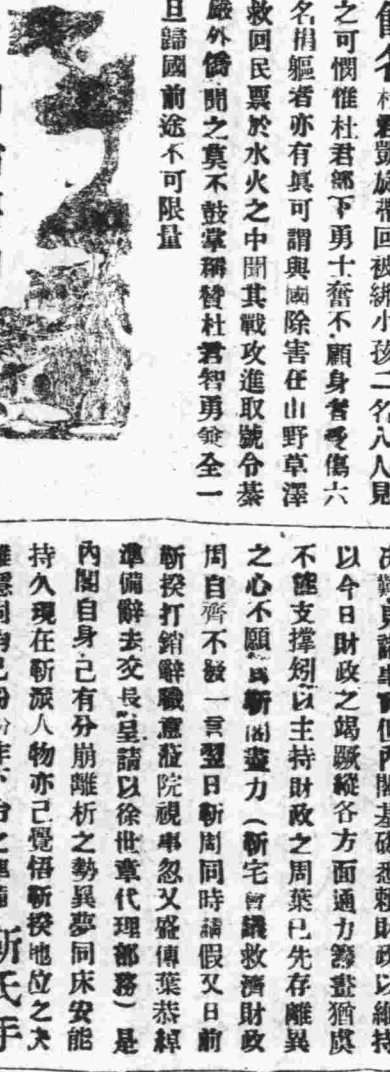 杜君凱旋帶回被綁小孩二名八人見
之可憫惟杜君部下勇士奮不顧身者受傷六
名捐軀者亦有眞可謂與國除害在山野草澤
救回民票於水火之中聞其戰攻進取號令綦
嚴外僑聞之莫不鼓掌稱贊杜君智勇兼全一
旦歸國前途不可限量
內閣基礎悉賴財政以維持
以今日財政之竭蹶縱各方面通力籌畫猶虞
不能支撐矧以主持財政之周葉已先存離異
之心不願爲靳閣盡力（靳宅會議救濟財政
周自齊不發一言翌日靳周同時請假又日前
靳揆打銷辭職意蒞院視事忽又盛傳葉恭綽
準備辭去交長呈請以徐世章代理部務）是
內閣自身己有分崩離析之勢異夢同床安能
持久現在靳派人物亦己覺悟靳揆地位之决
靳氏年